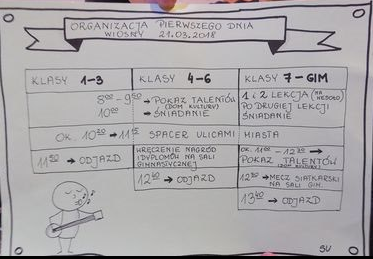 ORGANIZACJA PIERWSZEGO DNIA
WIOSNY 21.03.2018
KLASY 1-3
KLASY 4-6
KLASY 7-GIM
8⁰⁰ - 9⁵⁰ → POKAZ TALENTÓW
(DOM KULTURY)
10⁰⁰ → ŚNIADANIE
1 i 2 LEKCJA (NA
WESOŁO)
PO DRUGIEJ LEKCJI
ŚNIADANIE
OK. 10²⁰ → 11¹⁵ SPACER ULICAMI MIASTA
11³⁰ → ODJAZD
WRĘCZENIE NAGRÓD
I DYPLOMÓW NA SALI
GIMNASTYCZNEJ
12⁴⁰ → ODJAZD
OK. 11⁰⁰ - 12³⁰ →
POKAZ TALENTÓW
(DOM KULTURY)
→ MECZ SIATKARSKI
NA SALI GIM.
13⁴⁰ → ODJAZD
SU